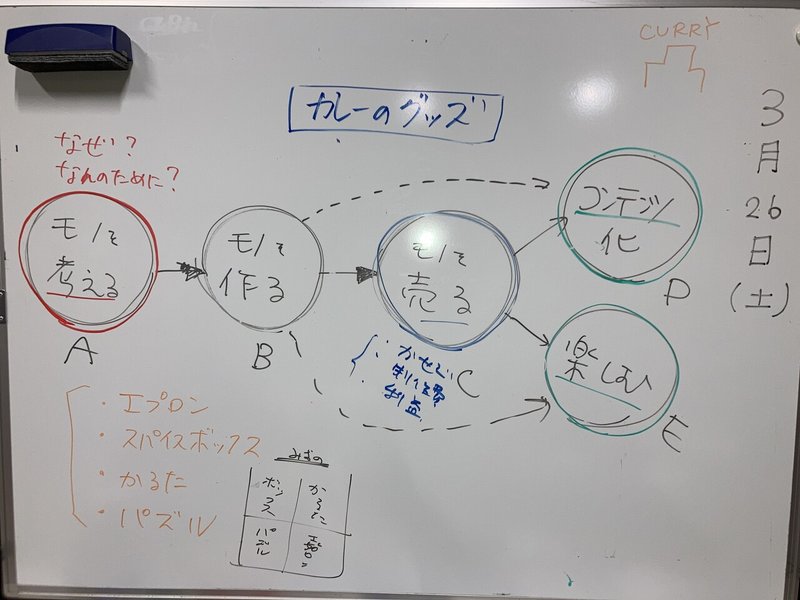 CURRY
カレーのグッズ
3
月
26
日
(土)
なぜ?
なんのために?
モノを
考える
A
モノを
作る
B
モノを
売る
C
コンテンツ
化
D
楽しむ
E
・かせぐ
・制作費
・利益
・エプロン
・スパイスボックス
・かるた
・パズル
みずの
ボックス
かるた
パズル